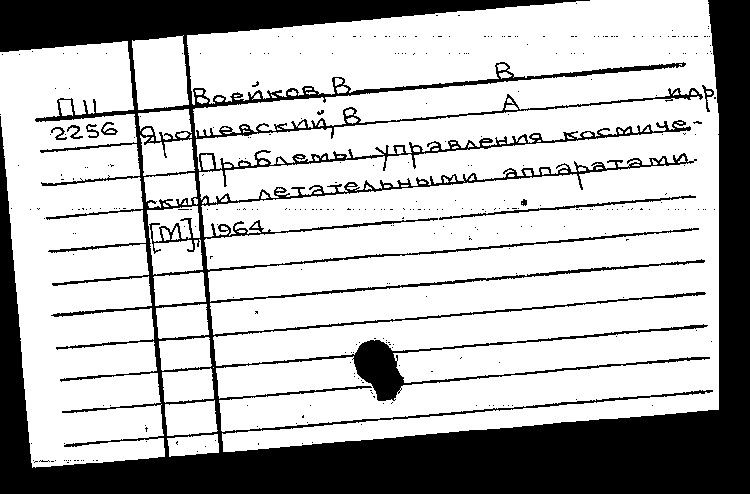 П11 Воейков, В В
2256 Ярошевский, В А и др
Проблемы управления космиче-
скими летательными аппаратами.
[М], 1964.